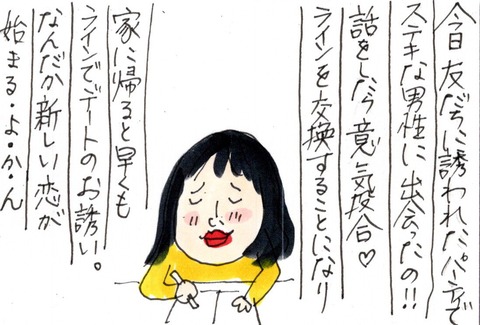 今日友だちに誘われたパーティで
ステキな男性に出会ったの!!
話をしたら意気投合♡
ラインを交換することになり
家に帰ると早くも
ラインでデートのお誘い。
なんだか新しい恋が
始まる・よ・か・ん